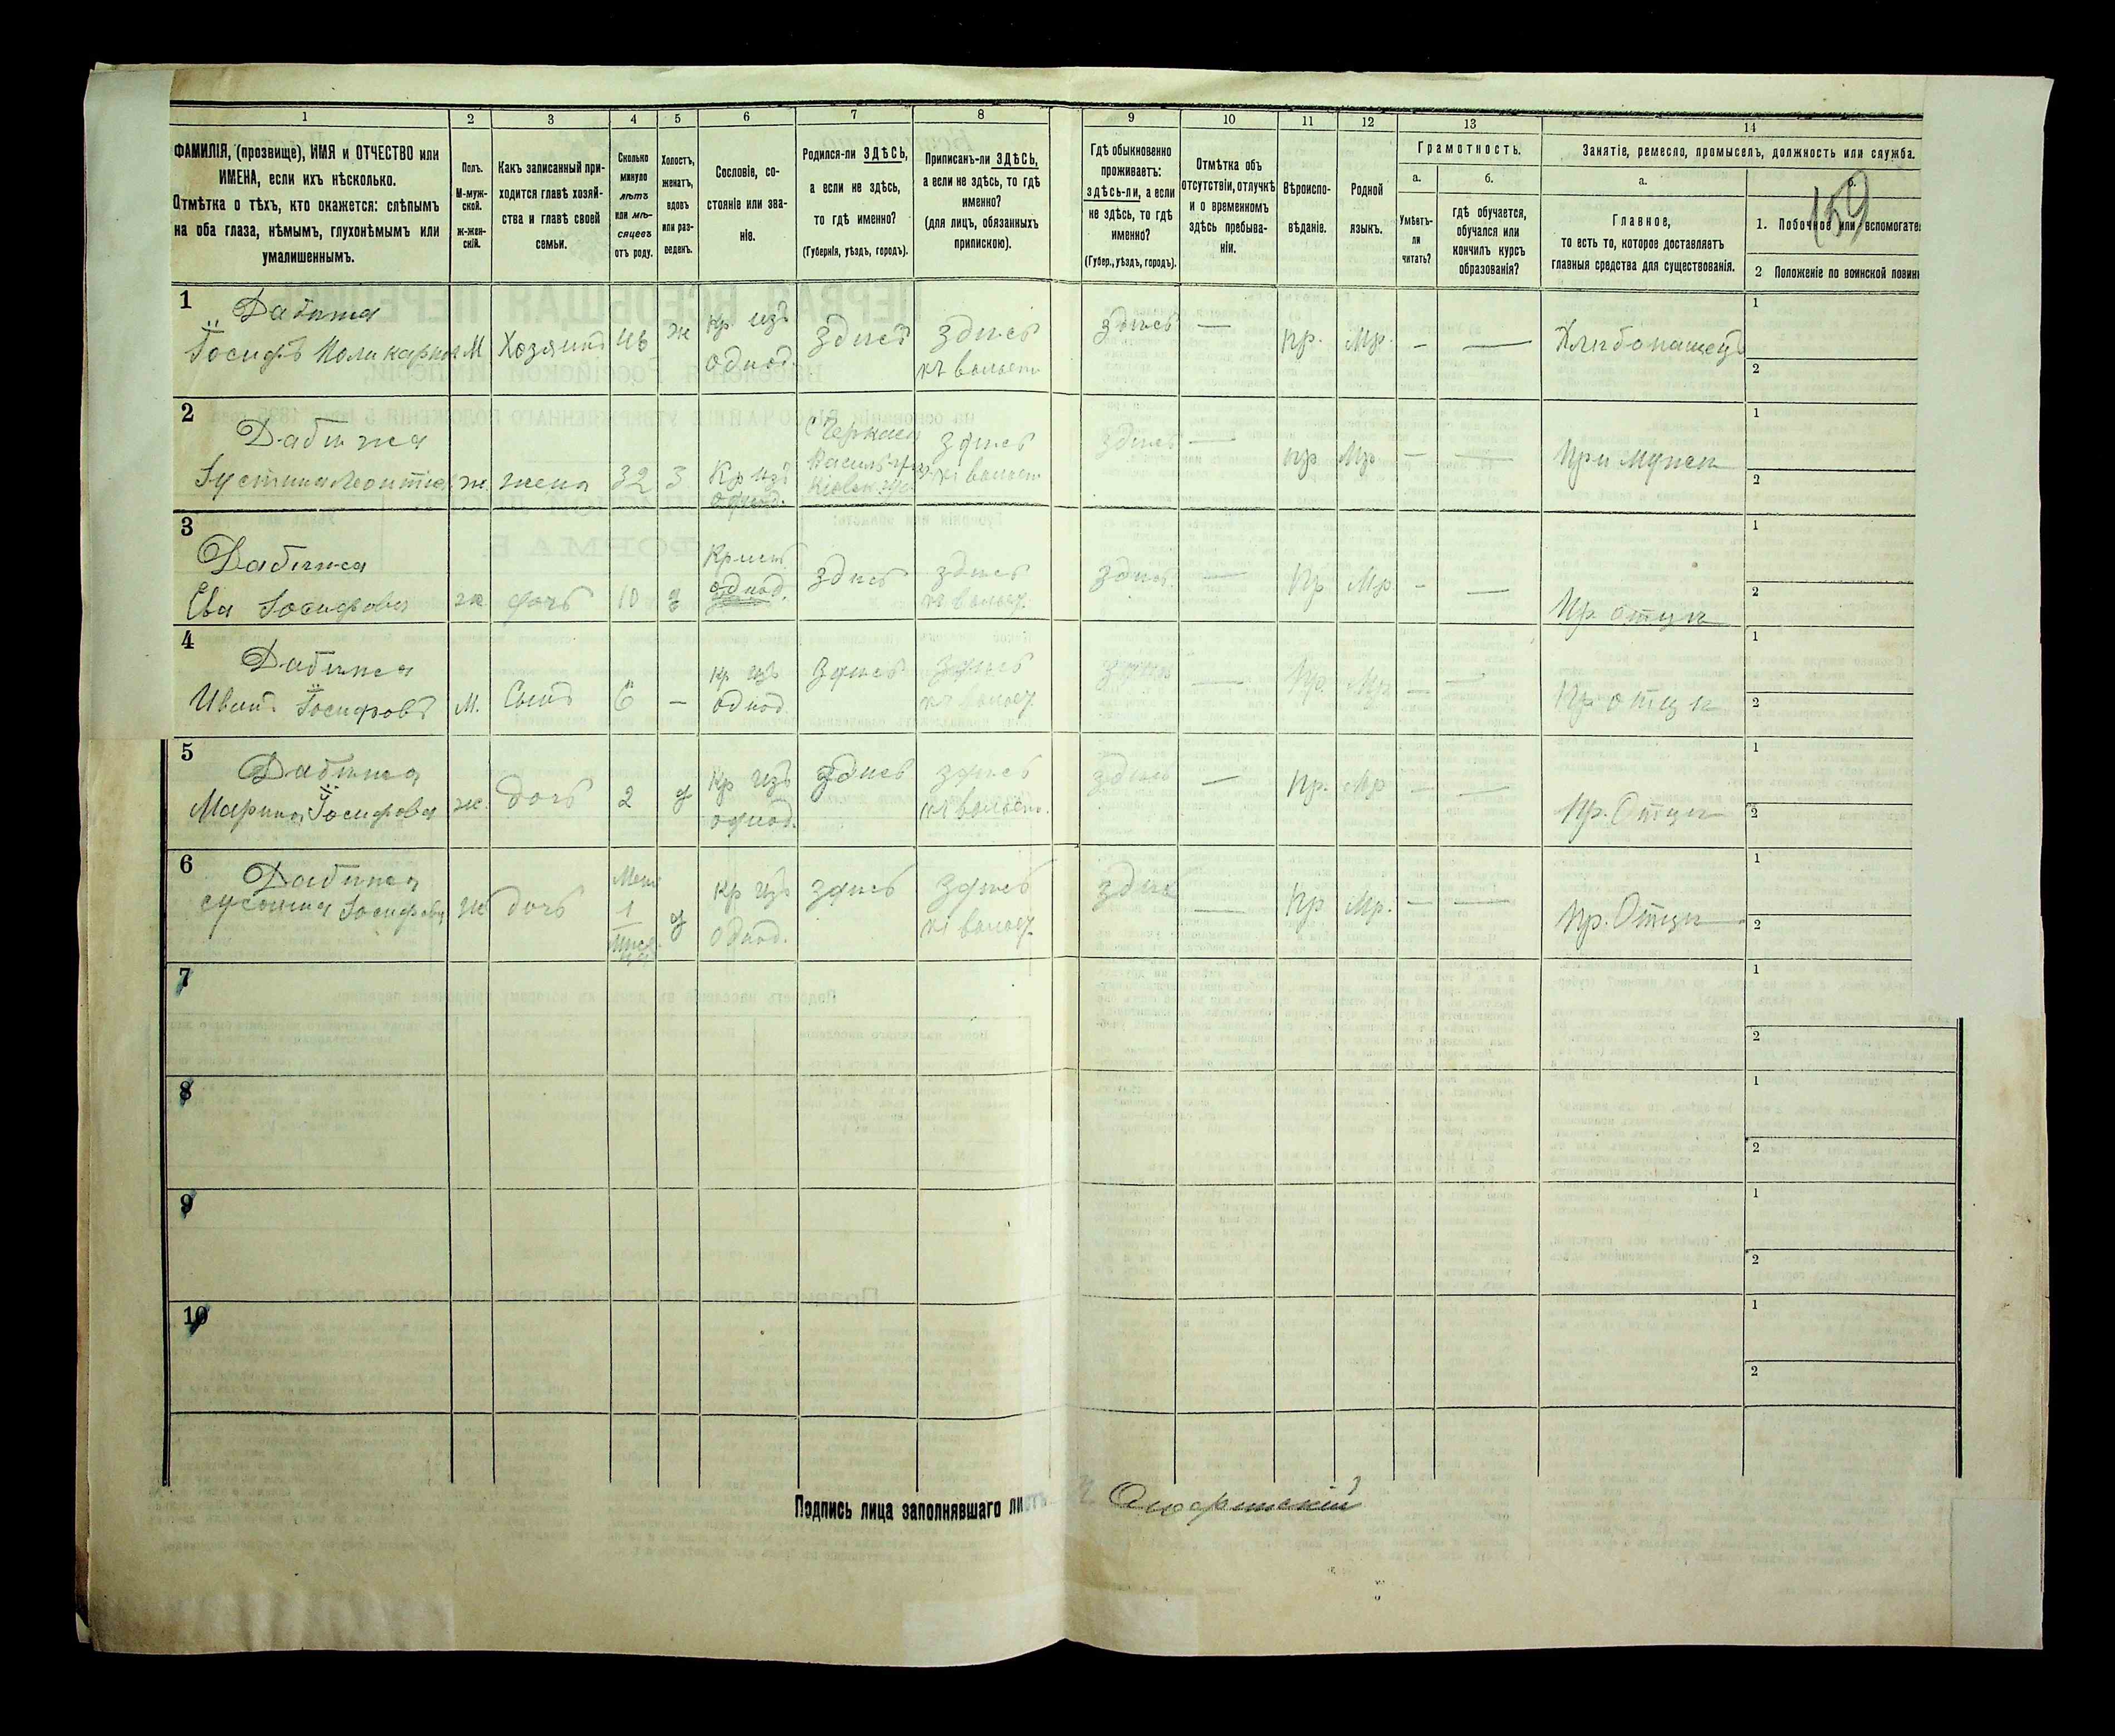 1 2 3 4 5 6 7 8 9 10 11 12 13 14
ФАМИЛІЯ, (прозвище), ИМЯ и ОТЧЕСТВО или
ИМЕНА, если ихъ нѣсколько.
Отмѣтка о тѣхъ, кто окажется: слѣпымъ
на оба глаза, нѣмымъ, глухонѣмымъ или
умалишеннымъ.
Полъ.
М-муж-
ской.
ж-жен-
скій.
Какъ записанный при-
ходится главѣ хозяй-
ства и главѣ своей
семьи.
Сколько
минуло
лѣтъ
или мѣ-
сяцевъ
отъ роду.
Холостъ,
женатъ,
вдовъ
или раз-
веденъ.
Сословіе, со-
стояніе или зва-
ніе.
Родился-ли ЗДѢСЬ,
а если не здѣсь,
то гдѣ именно?
(Губернія, уѣздъ, городъ).
Приписанъ-ли ЗДѢСЬ,
а если не здѣсь, то гдѣ
именно?
(для лицъ, обязанныхъ
припискою).
Гдѣ обыкновенно
проживаетъ:
здѣсь-ли, а если
не здѣсь, то гдѣ
именно?
(Губер., уѣздъ, городъ).
Отмѣтка объ
отсутствіи, отлучкѣ
и о временномъ
здѣсь пребыва-
ніи.
Вѣроиспо-
вѣданіе.
Родной
языкъ.
Грамотность.
а.
Умѣетъ-
ли
читать?
б.
гдѣ обучается,
обучался или
кончилъ курсъ
образованія?
Занятіе, ремесло, промыселъ, должность или служба.
а.
Главное,
то есть то, которое доставляетъ
главныя средства для существованія.
б.
159
1. Побочное или вспомогате
2 Положеніе по воинской повин
1
Дабижа
Іосифъ Поликарпов М Хозяинъ 46 ж Кр изъ однод. Здѣсь здѣсь къ волости здѣсь — Пр. Мр. — — Хлѣбопашецъ
1
2
2
Дабижа
Іустина Леонтіева ж жена 32 З Кр изъ однод. здѣсь къ волости здѣсь — пр Мр — — При мужѣ
1
2
3
Дабижа
Ева Іосифова ж дочь 10 д однод. здѣсь здѣсь къ волост. здѣсь — Пр Мр — — Пр. отцѣ
1
2
4
Дабижа
Иванъ Іосифовъ М. Сынъ 6 — кр изъ однод. здѣсь здѣсь къ волост. здѣсь — Пр. Мр — — Пр отцѣ
1
2
5
Дабижа
Марина Іосифова ж. дочь 2 д Кр изъ однод. здѣсь здѣсь къ волост. здѣсь — Пр. Мр — — Пр. Отцѣ
1
2
6
Дабижа
Іосифова ж дочь 1 д кр изъ однод. здѣсь здѣсь къ волост. здѣсь — Пр Мр. — — Пр. Отцѣ
1
2
7
1
2
8
1
2
9
1
2
10
1
2
Подпись лица заполнявшаго листъ